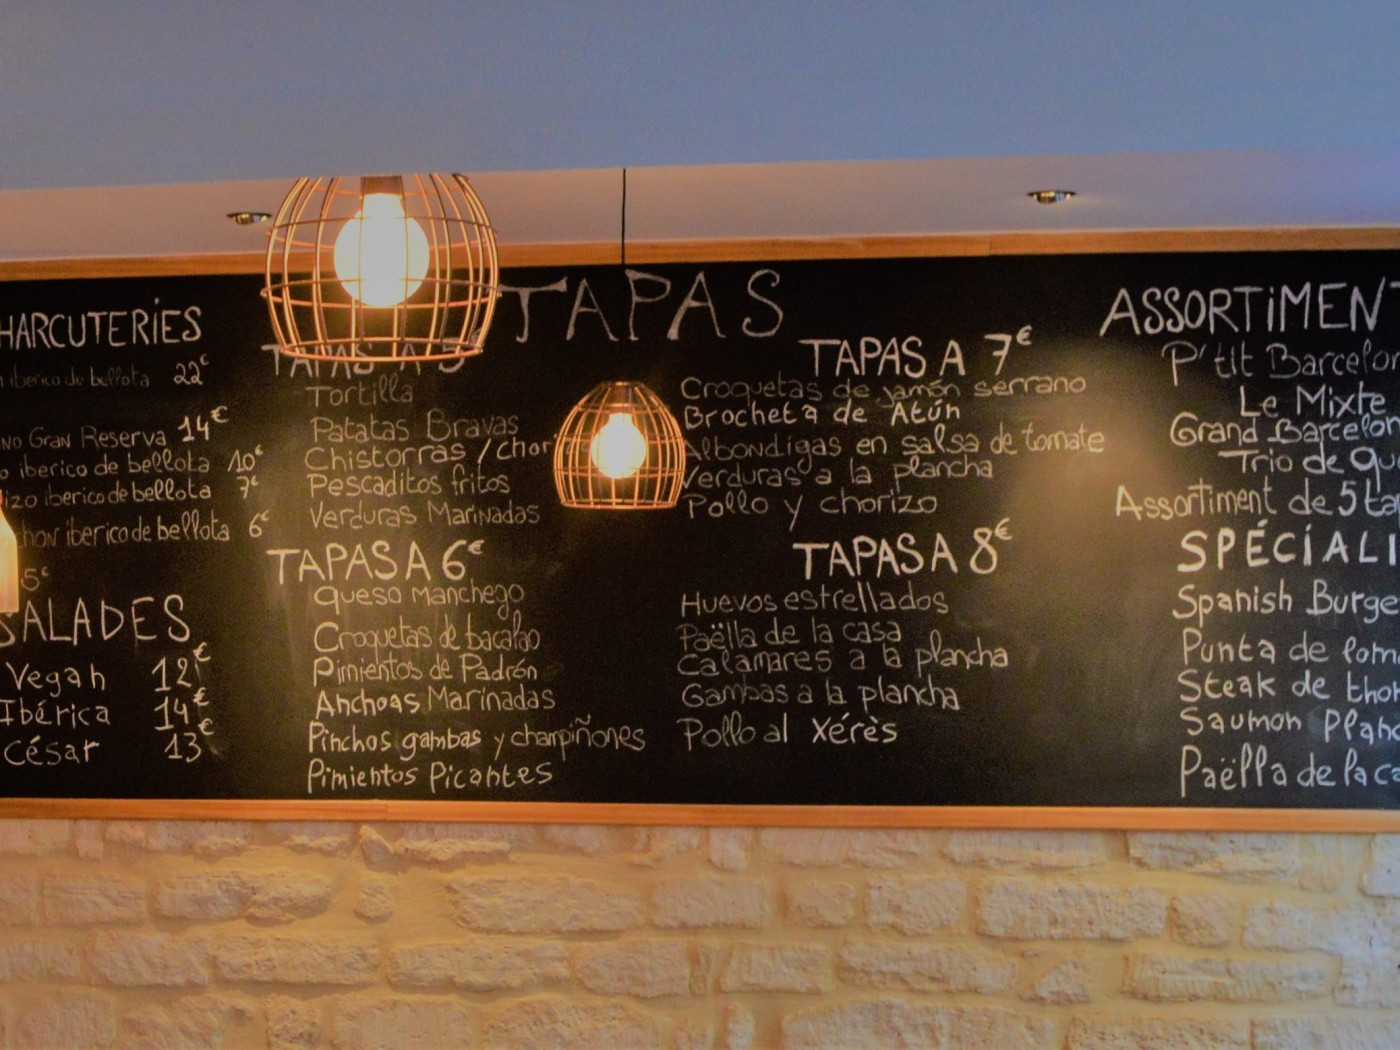 TAPAS
HARCUTERIES
iberico de bellota 22€
NO GRAN Reserva 14€
iberico de bellota 10€
izo iberico de bellota 7€
iberico de bellota 6€
5€
SALADES
Vegan 12€
Ibérica 14€
César 13€
TAPAS A 5
Tortilla
Patatas Bravas
Chistorras / chor
Pescaditos fritos
Verduras Marinadas
TAPAS A 6€
Queso Manchego
Croquetas de bacalao
Pimientos de Padrón
Anchoas Marinadas
Pinchos gambas y champiñones
Pimientos Picantes
TAPAS A 7€
Croquetas de jamón serrano
Brocheta de Atún
Albondigas en salsa de tomate
Verduras a la plancha
Pollo y chorizo
TAPAS A 8€
Huevos estrellados
Paëlla de la casa
Calamares a la plancha
Gambas a la plancha
Pollo al Xérès
ASSORTIMENT
P'tit Barcelon
Le Mixte
Grand Barcelon
Trio de que
Assortiment de 5 ta
SPÉCIALI
Spanish Burge
Punta de lom
Steak de thon
Saumon Planc
Paëlla de la ca